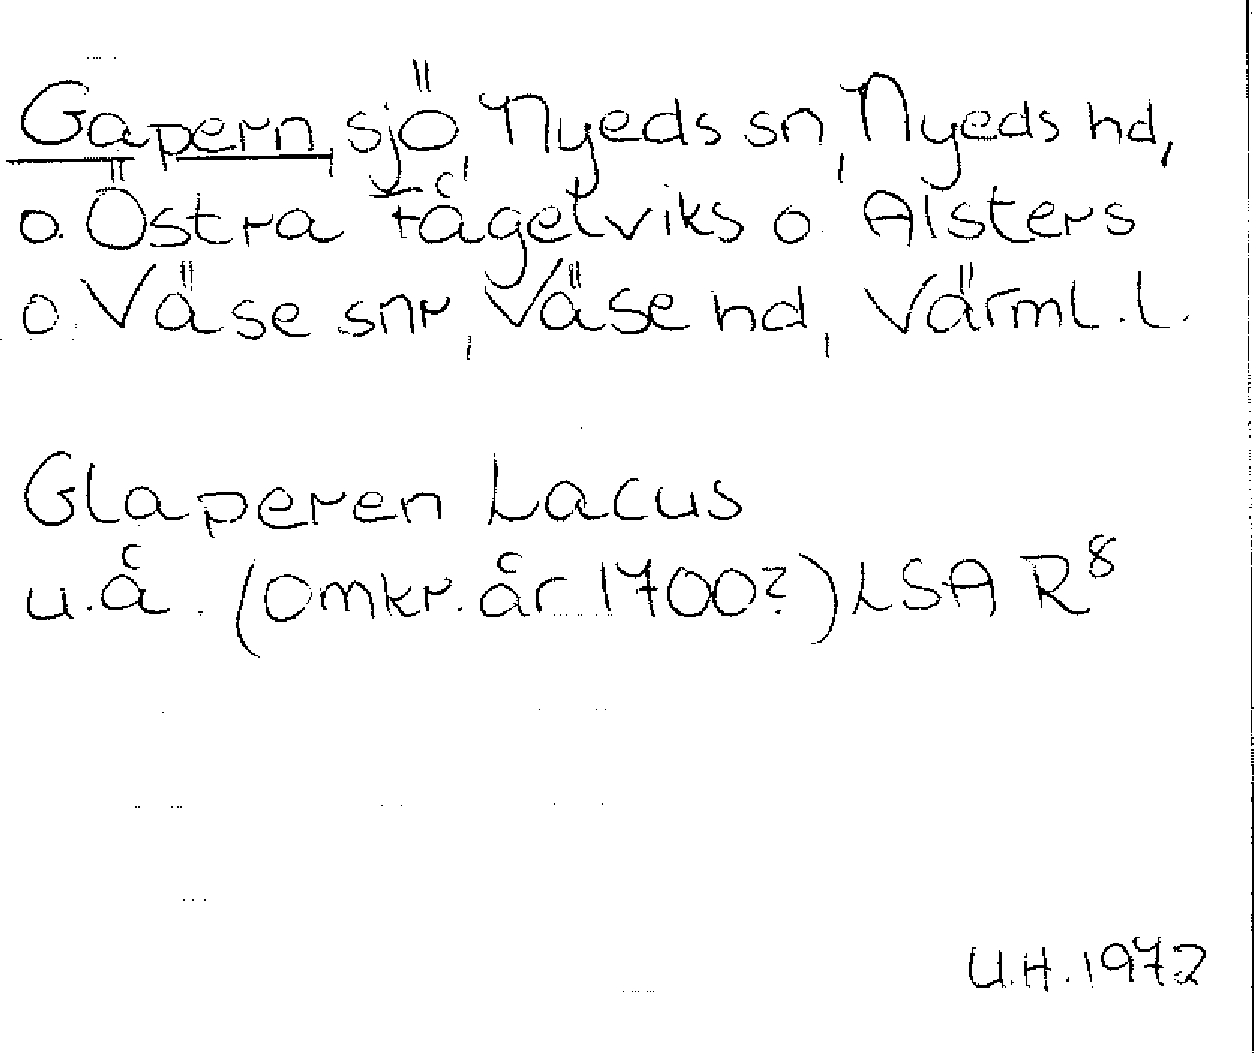 Gapern, sjö, Nyeds sn, Nyeds hd,
o. Östra Fågelviks o. Alsters
o. Väse snr, Väse hd, Värml. l.
Glaperen Lacus
u.å. (omkr. år 1700?) LSA R8
U.H. 1972